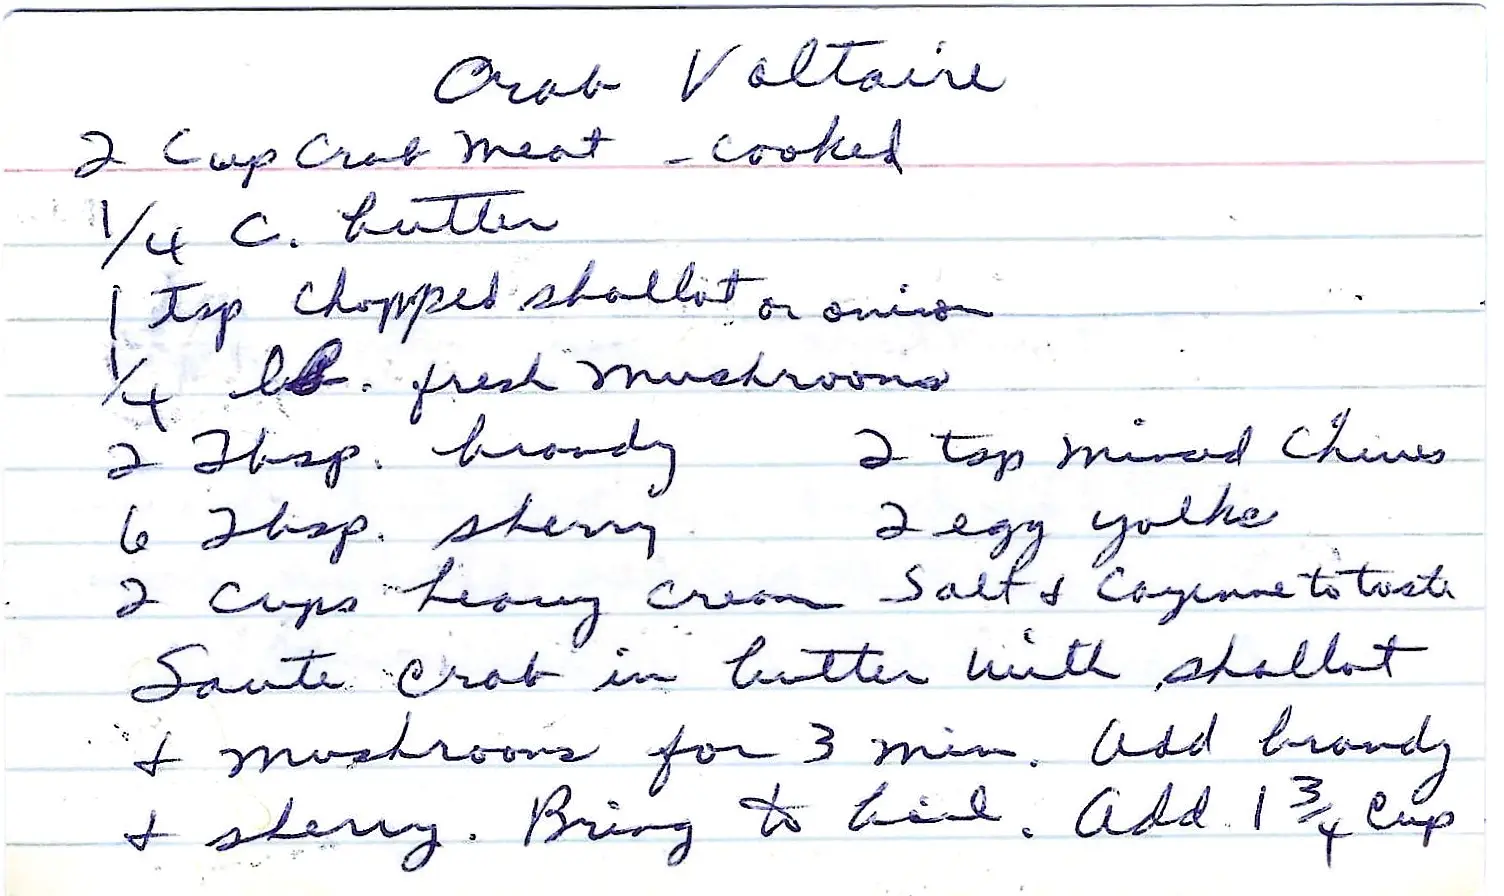 Crab Voltaire
2 Cup Crab Meat - cooked
1/4 c. butter
1 tsp chopped shallot or onion
1/4 lb. fresh mushrooms
2 Tbsp. brandy 2 tsp minced Chives
6 Tbsp. sherry 2 egg yolks
2 cups heavy cream Salt & Cayenne to taste
Saute crab in butter with shallot
& mushrooms for 3 min. Add brandy
& sherry. Bring to boil. Add 1 3/4 cup